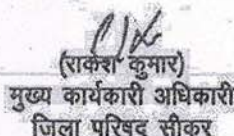 (राकेश कुमार)
मुख्य कार्यकारी अधिकारी
जिला परिषद सीकर